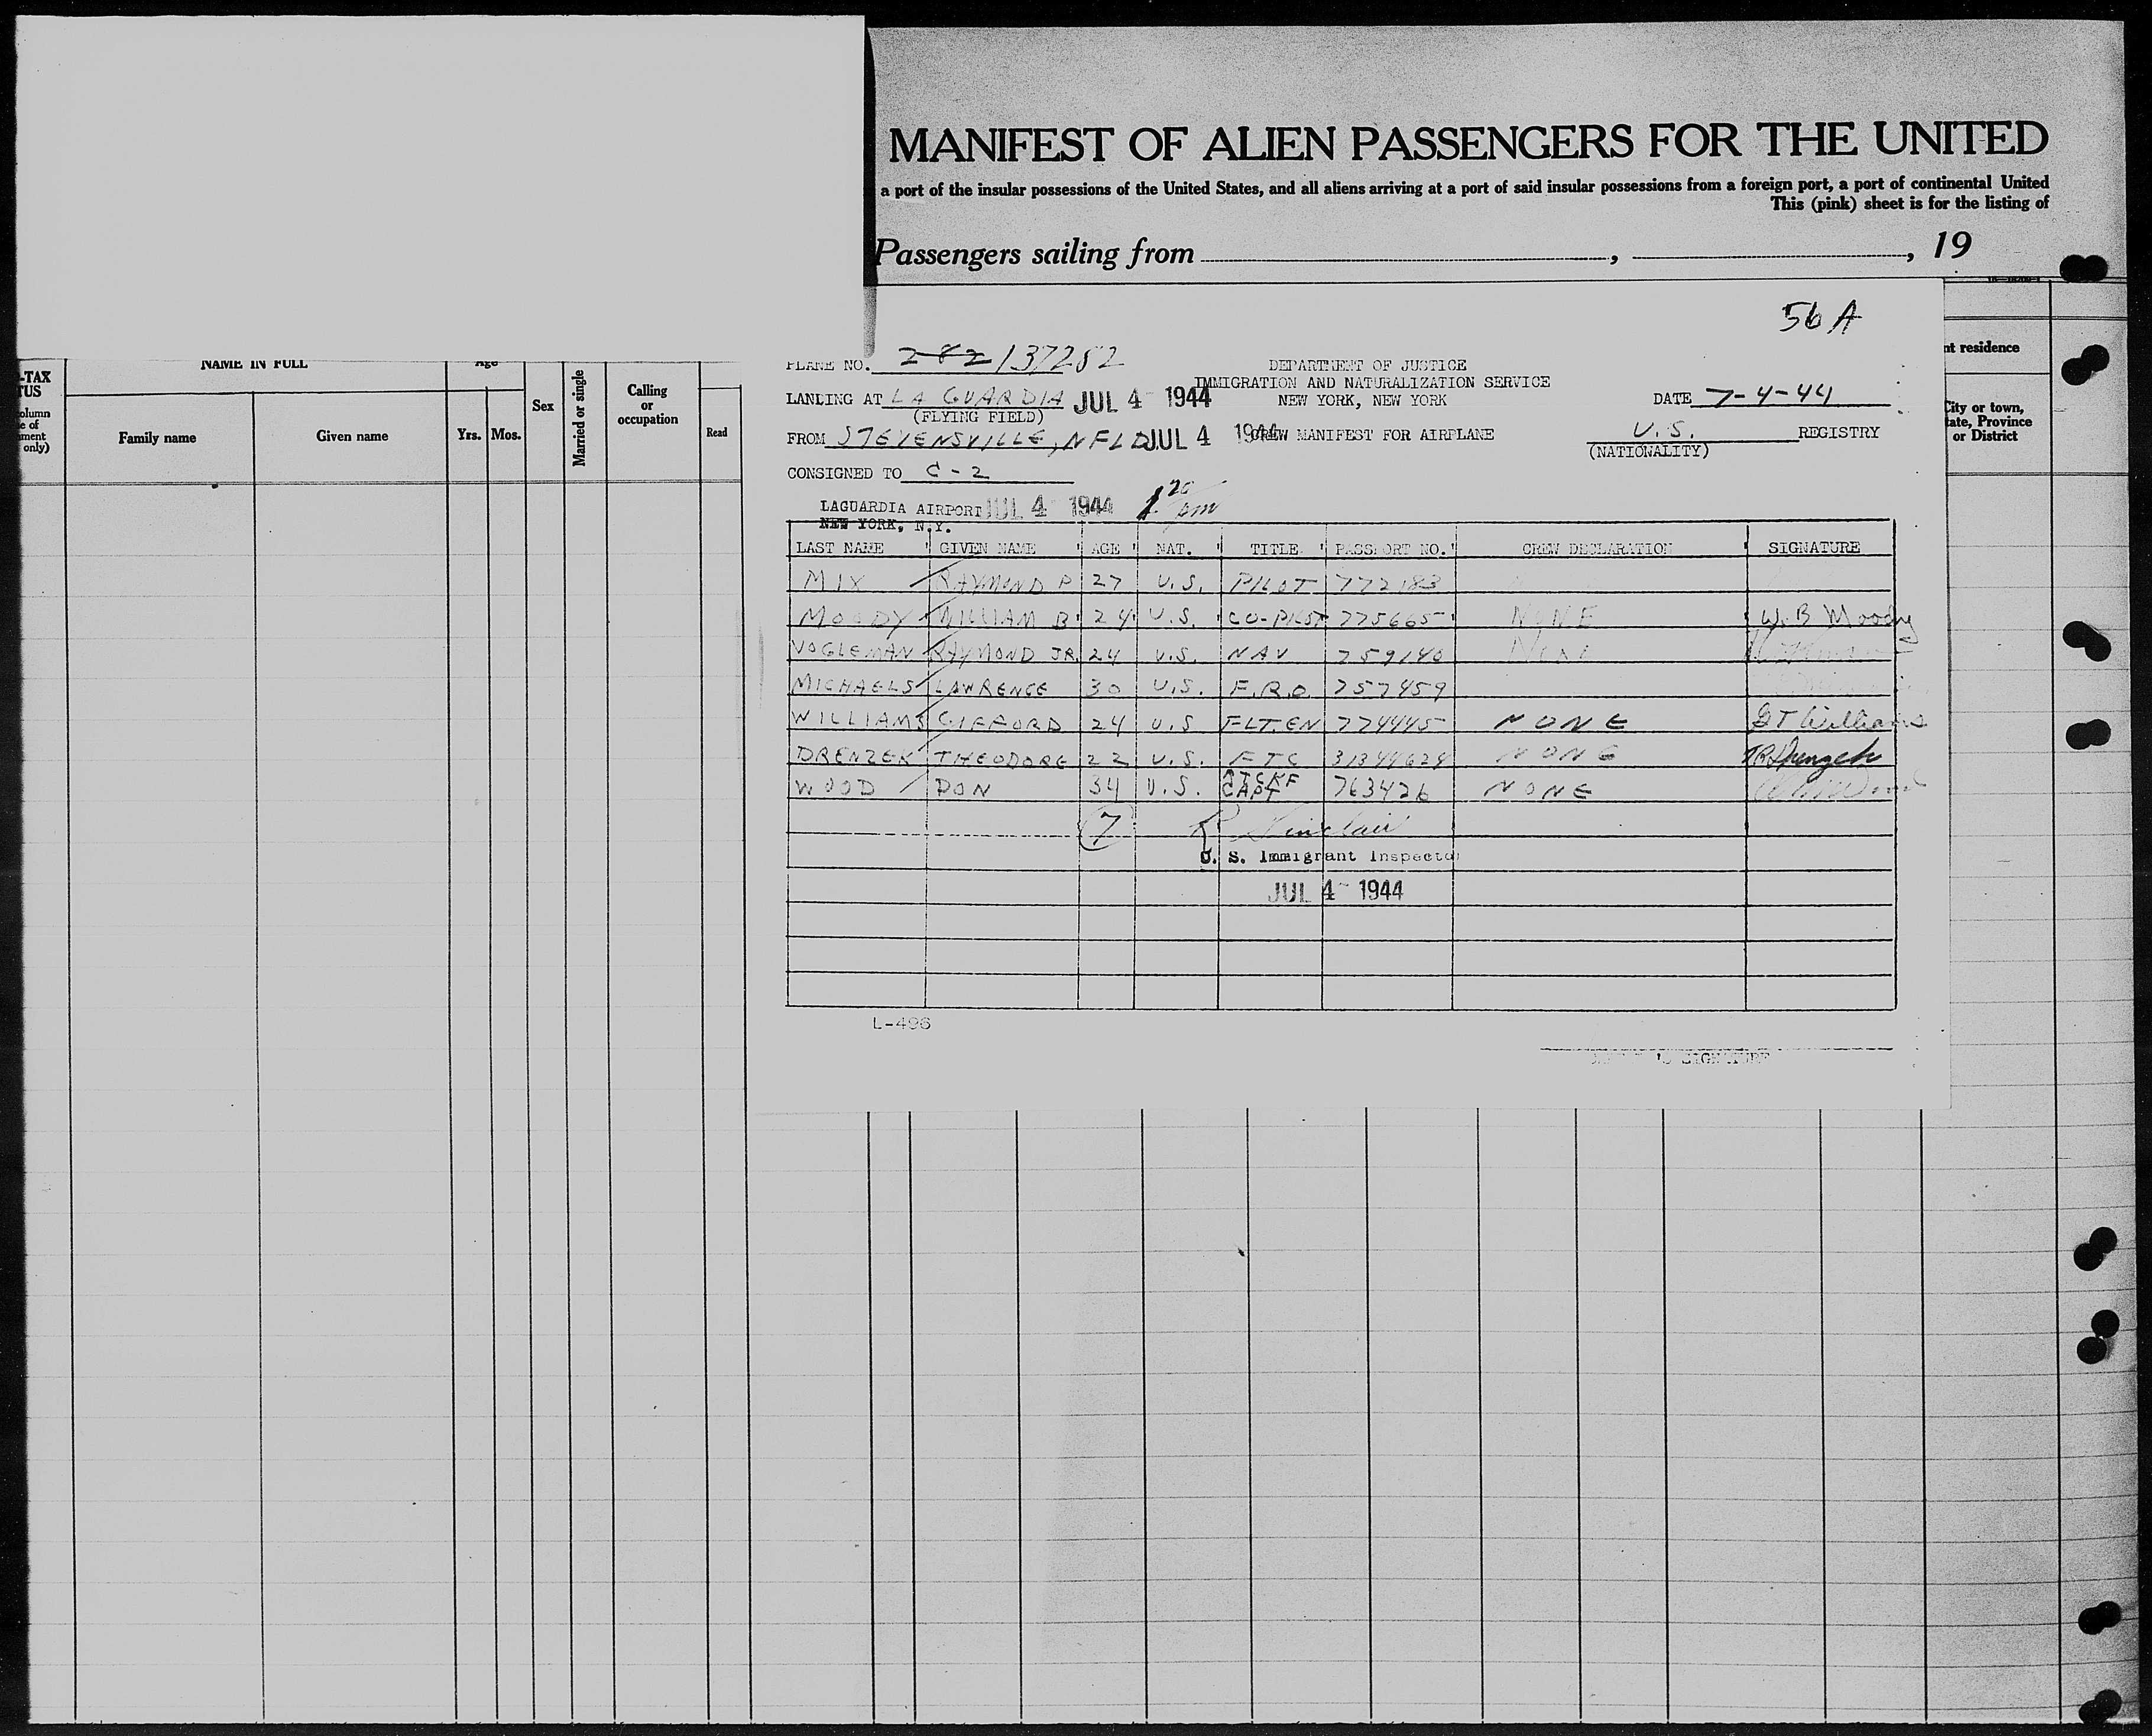 MANIFEST OF ALIEN PASSENGERS FOR THE UNITED
a port of the insular possessions of the United States, and all aliens arriving at a port of said insular possessions from a foreign port, a port of continental United
This (pink) sheet is for the listing of
Passengers sailing from , , 19
56 A
PLANE NO. 282 137282
DEPARTMENT OF JUSTICE
IMMIGRATION AND NATURALIZATION SERVICE
NEW YORK, NEW YORK
LANDING AT LA GUARDIA JUL 4 1944
(FLYING FIELD)
DATE 7-4-44
FROM STEVENSVILLE, NFLD. JUL 4 1944
CREW MANIFEST FOR AIRPLANE
U.S. REGISTRY
(NATIONALITY)
CONSIGNED TO C-2
LAGUARDIA AIRPORT JUL 4 1944 1 20 pm
NEW YORK, N.Y.
LAST NAME GIVEN NAME AGE NAT. TITLE PASSPORT NO. CREW DECLARATION SIGNATURE
MIX RAYMOND P 27 U.S. PILOT 772183
MOODY WILLIAM B 24 U.S. CO-PILOT 775665 NONE W. B Moody
VOGLEMAN RAYMOND JR. 24 U.S. NAV 759140 NONE
MICHAELS LAWRENCE 30 U.S. F.R.O. 757459
WILLIAMS GIFFORD 24 U.S FLT.EN 774445 NONE G T Williams
DRENZEK THEODORE 22 U.S. FTC 31344624 NONE TR Drenzek
WOOD DON 34 U.S. CAPT 763426 NONE
7 R Sinclair
U. S. Immigrant Inspector
JUL 4 1944
L-496
SIGNATURE
-TAX
TUS
olumn
e of
ment
only)
NAME IN FULL
Family name
Given name
Age
Yrs.
Mos.
Sex
Married or single
Calling
or
occupation
Read
nt residence
City or town,
tate, Province
or District